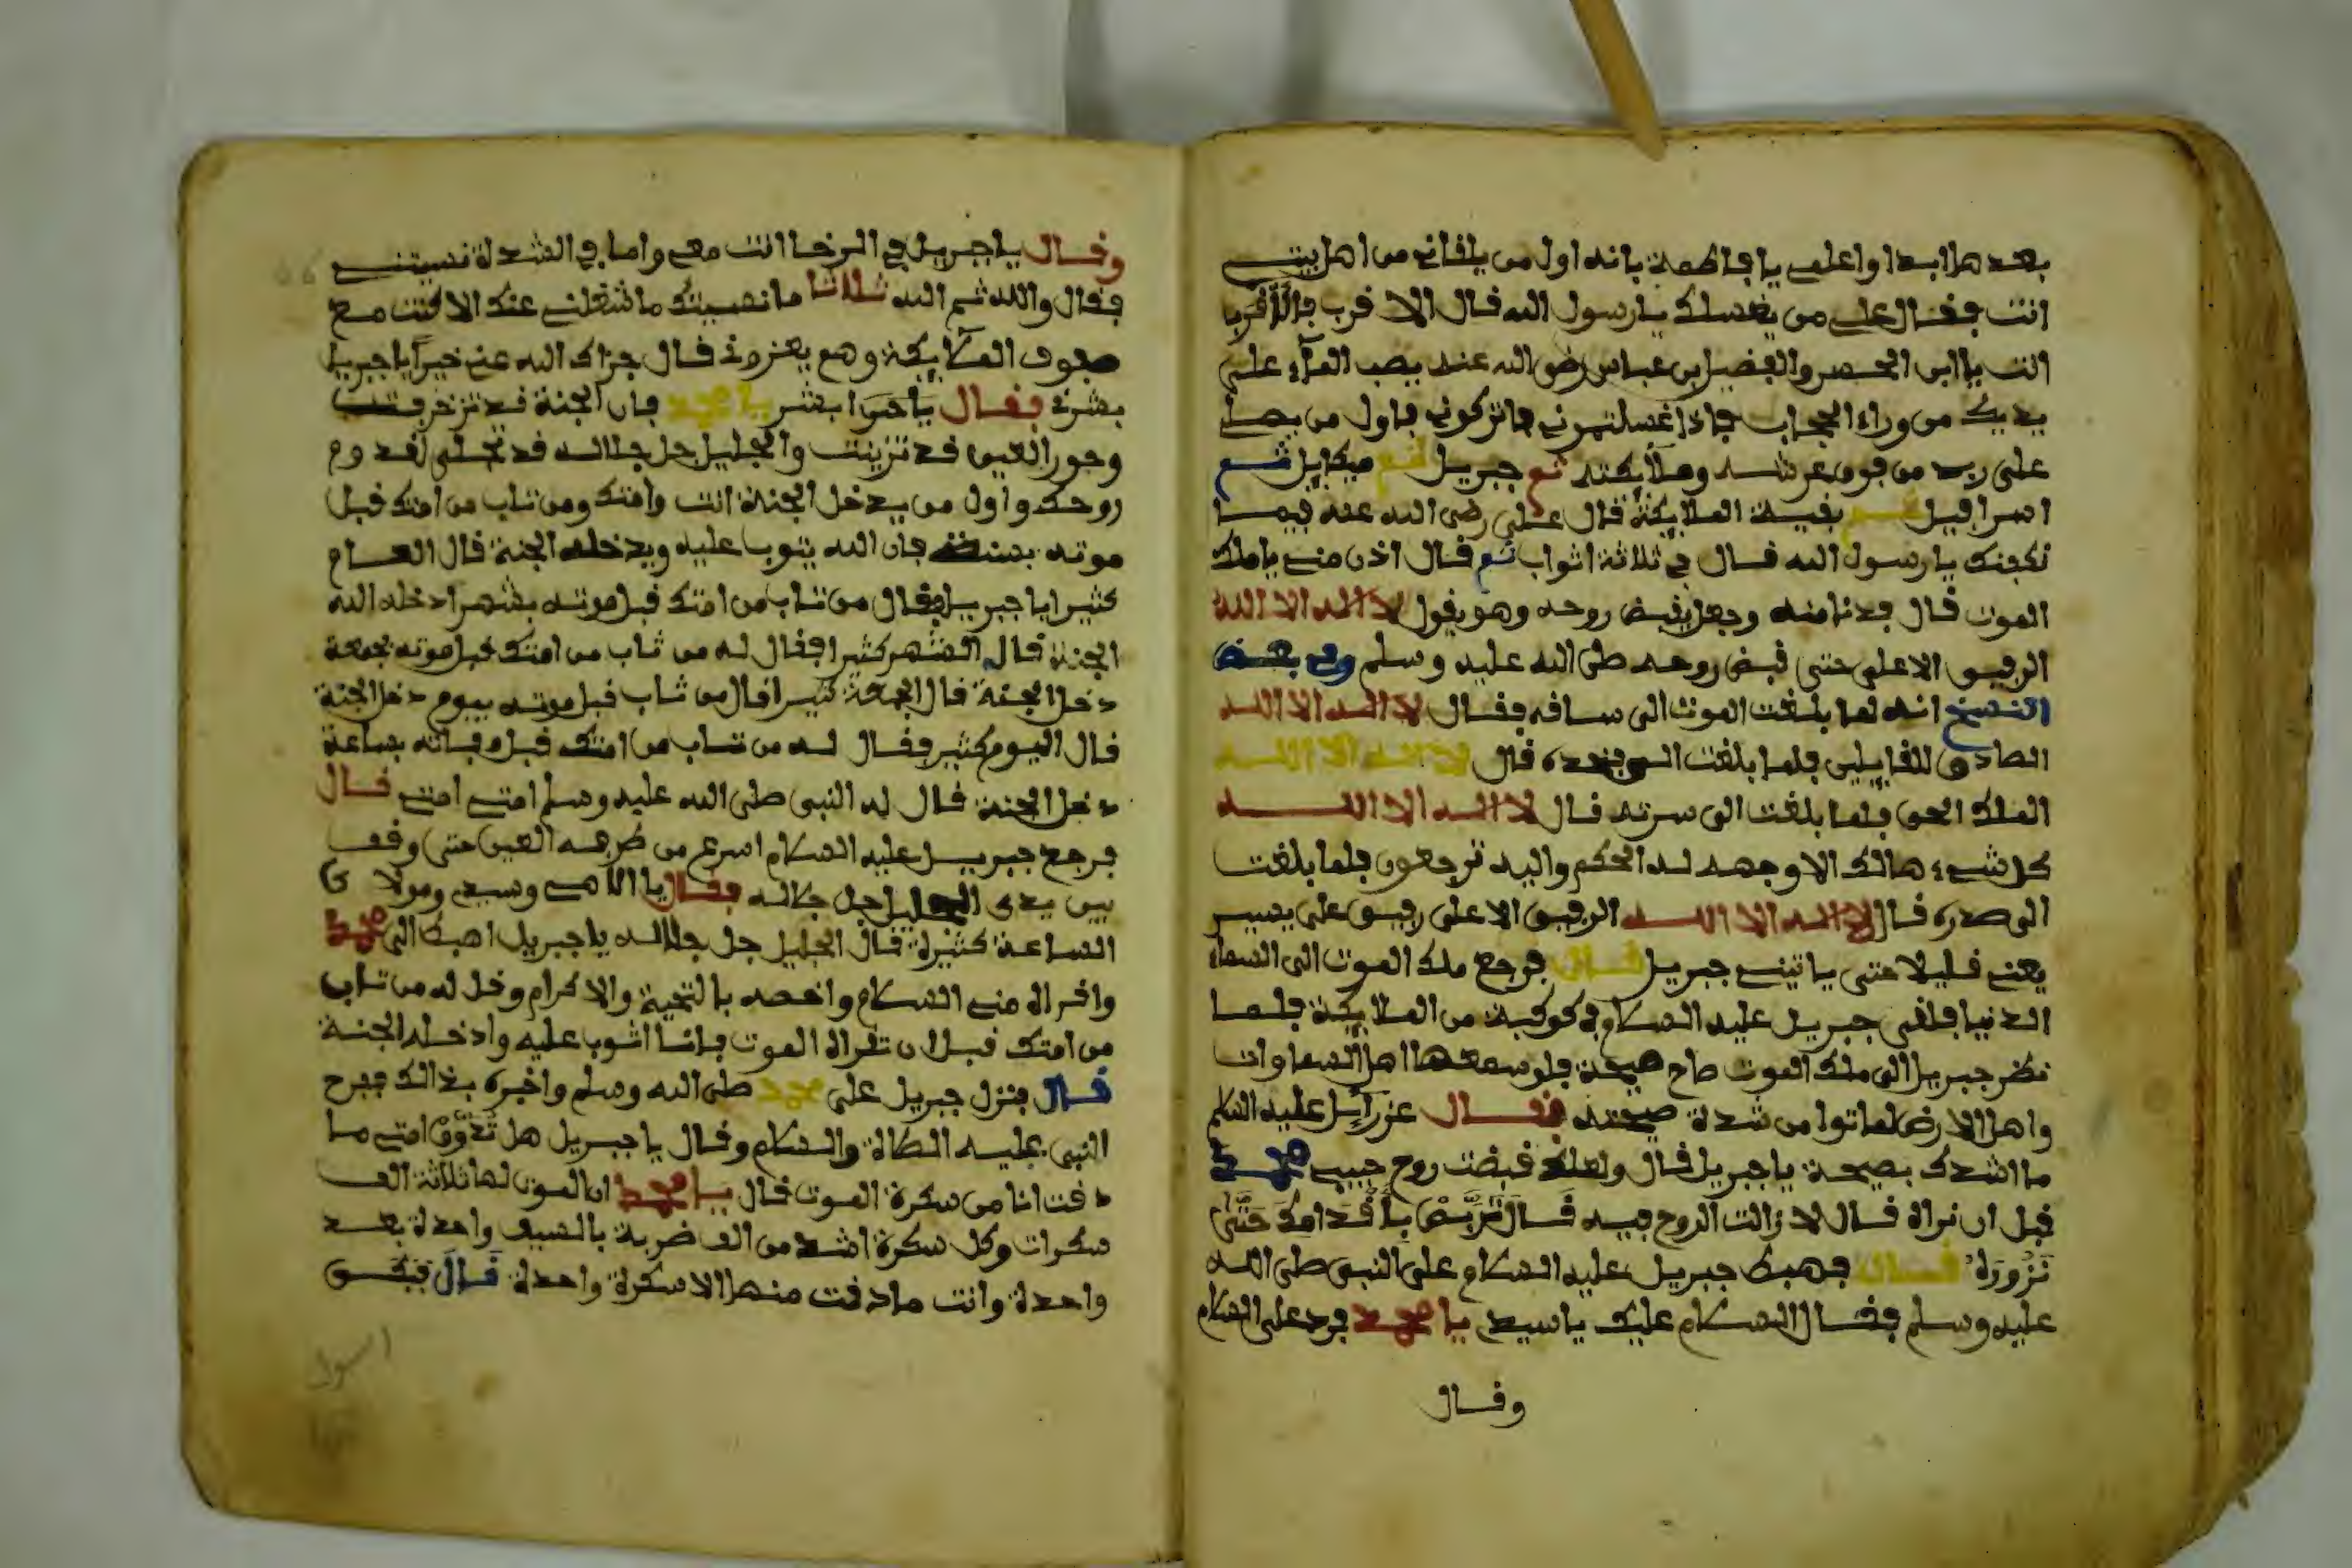 بعدها ابدا واعلمي يا فاطمة بانه اول من يلقاني من اهل بيتي
انت فقال علي من يغسلك يا رسول الله قال الاقرب فالاقرب
انت يا ابى الحسن والفضيل بن عباس رضي الله عنه يصب الماء على
يديك من وراء الحجاب فاذا غسلتموني فاتركوني فاول من يصلي
على ربي من فوق عرشه وملائكته ثم جبريل ثم ميكايل ثم
اسرافيل ثم بقية الملائكة قال علي رضي الله عنه فيما
نكفنك يا رسول الله قال في ثلاثة اثواب ثم قال اذن مني يا ملك
الموت قال فدنا منه وجعل يقبض روحه وهو يقول لا اله الا الله
الرفيق الاعلى حتى قبض روحه صلى الله عليه وسلم وفي بعض
النسخ انه لما بلغت الموت الى ساقه فقال لا اله الا الله
الصادق للقايلين فلما بلغت الى قال لا اله الا الله
الملك الحق فلما بلغت الى سرته قال لا اله الا الله
كل شيء هالك الا وجهه له الحكم واليه ترجعون فلما بلغت
الى صدره قال لا اله الا الله الرفيق الاعلى رفيق علي يسير
يعني قليلا حتى ياتيني جبريل قال فرجع ملك الموت الى السماء
الدنيا فلقي جبريل عليه السلام في كوكبة من الملائكة فلما
نظر جبريل الى ملك الموت صاح صيحة فلو سمعها اهل السماوات
واهل الارض لماتوا من شدة صيحته فقال عزرائيل عليه السلام
ما اشدك بصيحة يا جبريل قال ولعلك قبضت روح حبيبي محمد
قبل ان نراه قال لا زالت الروح فيه قال تربص باقدامك حتى
تزوره قال فهبط جبريل عليه السلام على النبي صلى الله
عليه وسلم فقال السلام عليك يا سيدي يا محمد فرد على السلام
وقال
وقال يا جبريل في الرخا انت معي واما في الشدة نسيتني
فقال والله ثم الله ثلاثا ما نسيتك ما شغلني عنك الا كنت مع
صفوف الملائكة وهم يعزوني قال جزاك الله عني خيرا يا جبريل
بشرني فقال يا ابشر يا محمد فان الجنة قد تزخرفت
وحور العين قد تزينت والجليل جل جلاله قد تجلى لقدوم
روحك واول من يدخل الجنة انت وامتك ومن تاب من امتك قبل
موته بسنة فان الله يتوب عليه ويدخله الجنة قال العام
كثيرا يا جبريل فقال من تاب من امتك قبل موته بشهر ادخله الله
الجنة قال الشهر كثيرا فقال له من تاب من امتك قبل موته بجمعة
دخل الجنة قال الجمعة كثيرا قال من تاب قبل موته بيوم دخل الجنة
قال اليوم كثير فقال له من تاب من امتك قبل وفاته بساعة
دخل الجنة قال له النبي صلى الله عليه وسلم امتي امتي قال
فرجع جبريل عليه السلام اسرع من طرفه العين حتى وقف
بين يدي الجليل جل جلاله فقال يا الاهي وسيدي ومولاي
الساعة كثيرة قال الجليل جل جلاله يا جبريل اهبط الى محمد
واقراه مني السلام واخصه بالتحية والاكرام وقل له من تاب
من امتك قبل ان تقراه الموت فانا اتوب عليه وادخله الجنة
قال فنزل جبريل على محمد صلى الله وسلم واخبره بذالك ففرح
النبي عليه الصلاة والسلام وقال يا جبريل هل تذوق امتي ما
دقت انا من سكرة الموت قال يا محمد ان الموت لها ثلاثة الف
سكرات وكل سكرة اشد من الف ضربة بالسيف واحدة بعد
واحدة وانت ما دقت منها الا سكرة واحدة قال فبكى